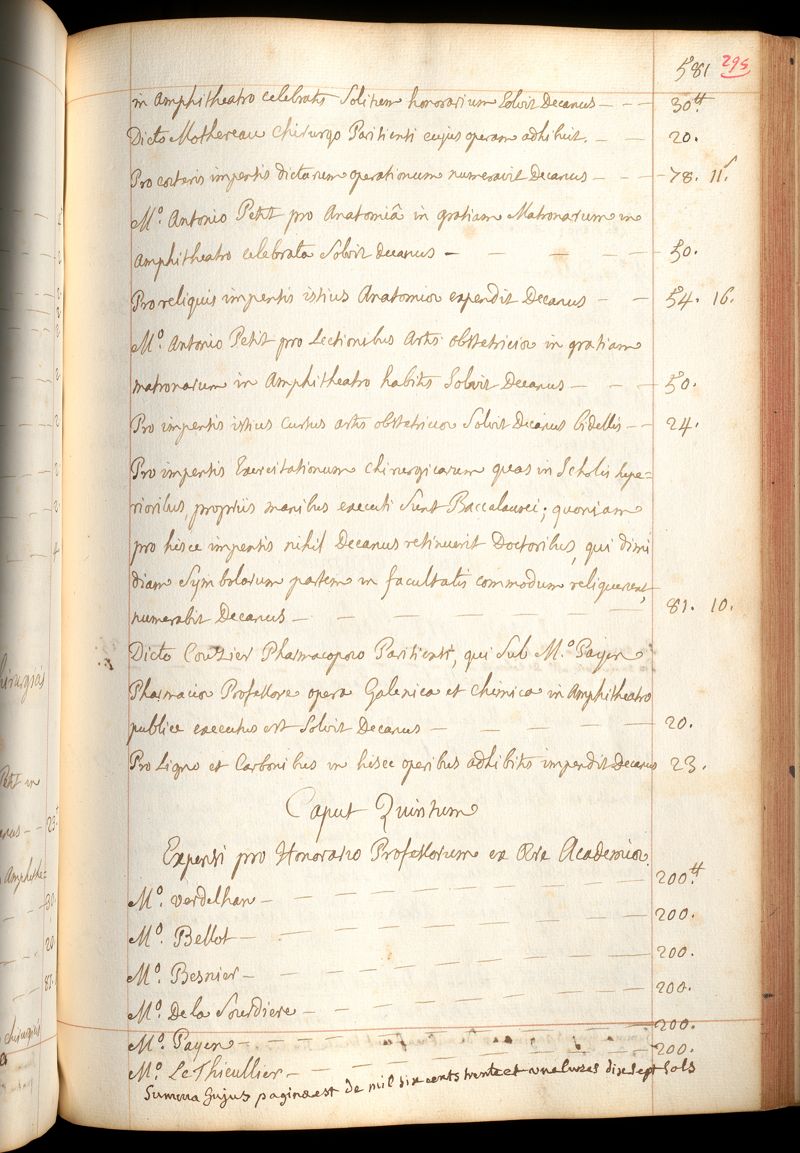 581 295
in Amphitheatro celebratis Solitum honorarium Solvit Decanus — — — 30.tt
Dicto Mothereau Chirurgo Parisiensi cujus operam adhibuit. — — — 20.
Pro coeteris impensis dictarum operationum numeravit Decanus — — — 78. 11.s
M.o Antonio Petit pro Anatomiâ in gratiam Matronarum in
Amphitheatro celebrata Solvit decanus — — — — — 50.
Pro reliquis impensis istius Anatomioe expendit Decanus — — 54. 16.
M.o Antonio Petit pro Lectionibus Artis obstetricioe in gratiam
matronarum in Amphitheatro habitis Solvit Decanus — — — 50.
Pro impensis istius Cursus artis obstetricioe Solvit Decanus bidellis — — 24.
Pro impensis Exercitationum chirurgicarum quas in Scholis Supe=
rioribus, propriis manibus executi Sunt Baccalaurei; quoniam
pro hisce impensis nihil Decanus retinuerit Doctoribus, qui dimi
diam Symbolarum partem in facultatis commodum reliquerunt,
numerabit Decanus — — — — — — — 81. 10.
Dicto Couzier Pharmacopoeo Parisiensi, qui Sub M.o Payen
Pharmacioe Professore opera Galenica et Chimica in Amphitheatro
publice executus est Solvit Decanus — — — — — 20.
Pro Ligno et Carbonibus in hisce operibus adhibitis impendit Decanus 23.
Caput Quintum
Expensi pro Honorario Professorum ex Ære Academico.
M.o Verdelhan — — — — — — — 200.tt
M.o Bellot — — — — — — — 200.
M.o Besnier — — — — — — — 200.
M.o De la Sourdiere — — — — — — 200.
M.o Payen — — — — — — — 200.
M.o Le Thieullier — — — — — — 200.
Summa hujus paginæ est de mil six cents trente et une livres dix sept sols